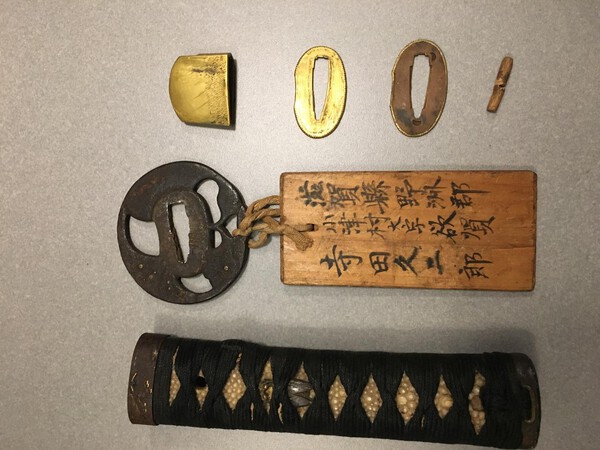 滋賀縣野洲郡
小津村大字欲賀
寺田久二郎